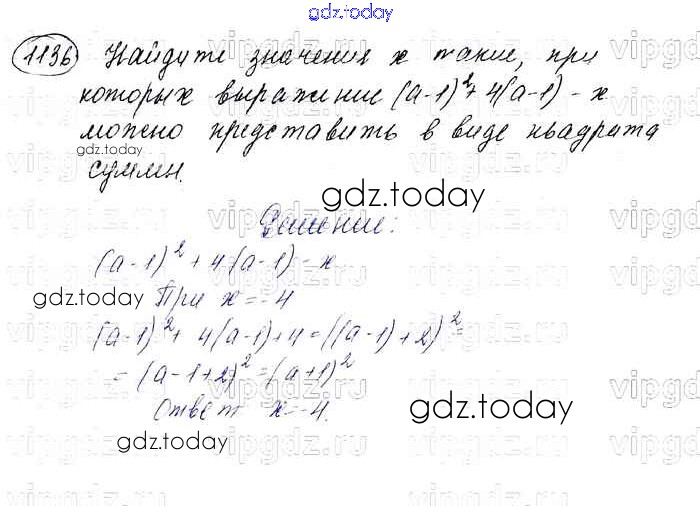 gdz.today
1136 Найдите значения x такие, при
которых выражение (a-1)²+4(a-1)-x
можно представить в виде квадрата
gdz.today
суммы.
gdz.today
Решение:
(a-1)²+4(a-1)-x
gdz.today
При x=-4
(a-1)²+4(a-1)+4=((a-1)+2)²=
=(a-1+2)²=(a+1)²
Ответ x=-4.
gdz.today
gdz.today
vipgdz.ru